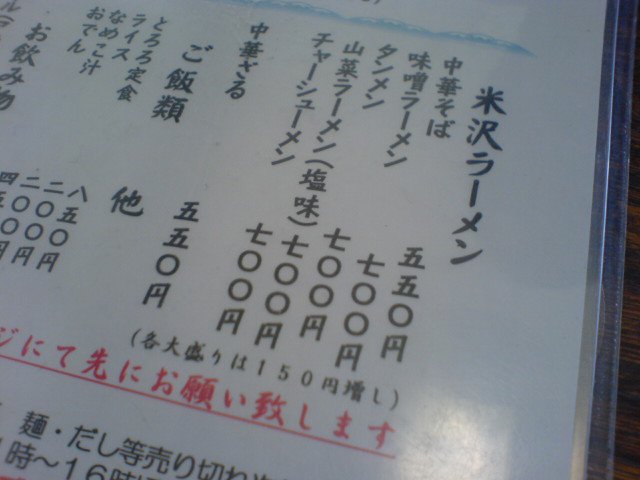 米沢ラーメン
中華そば 五五〇円
味噌ラーメン 七〇〇円
タンメン 七〇〇円
山菜ラーメン(塩味) 七〇〇円
チャーシューメン 七〇〇円
中華ざる 五五〇円
ご飯類 他
とろろ定食 八五〇円
ライス 二〇〇円
なめこ汁 二〇〇円
おでん
お飲み物
(各大盛りは150円増し)
ジにて先にお願い致します
麺・だし等売り切れ
時～16時